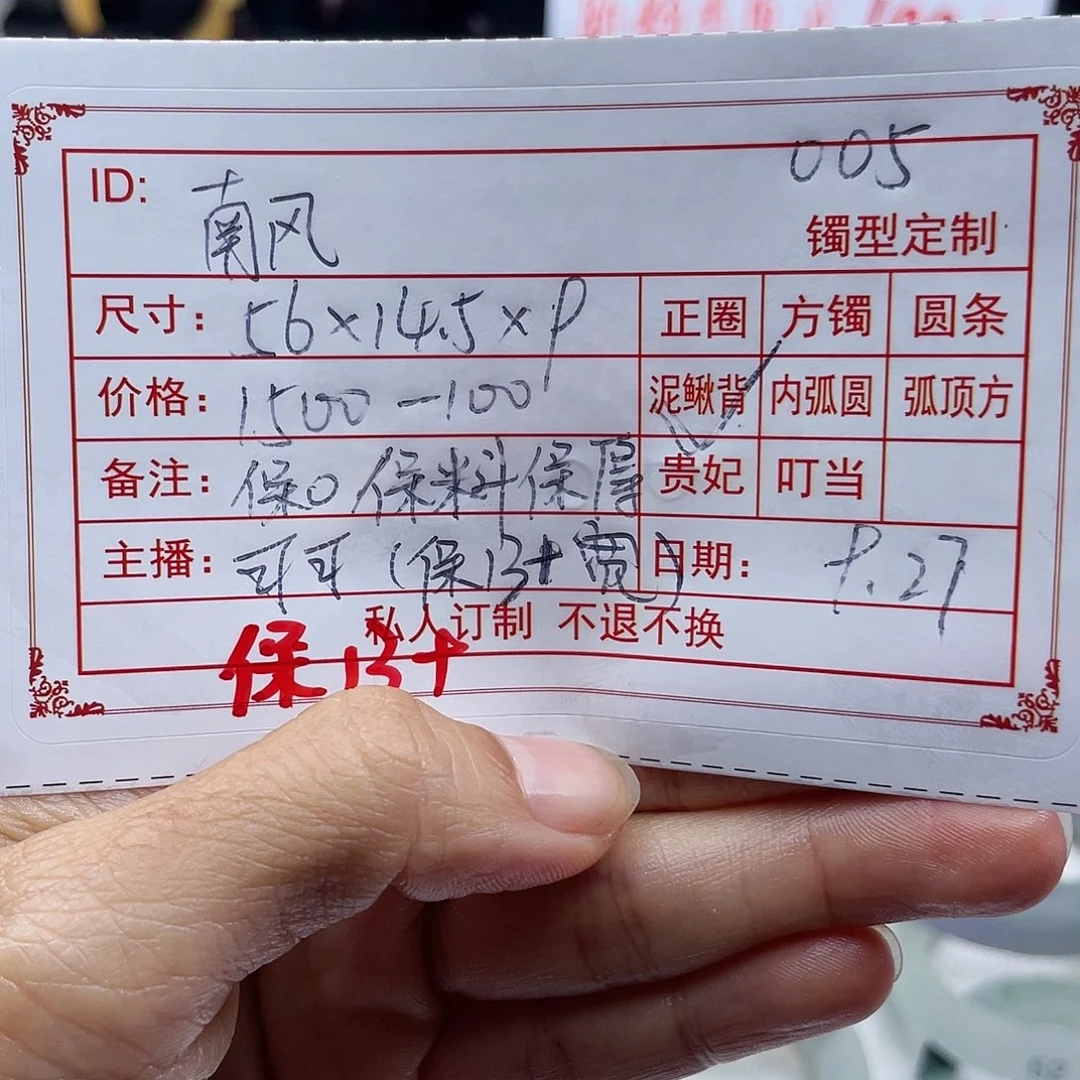 005
ID: 南风
镯型定制
尺寸: 56×14.5×P 正圈 方镯 圆条
价格: 1500-100 泥鳅背 内弧圆 弧顶方
备注: 保0保料保厚 贵妃 叮当
主播: 可可(保13+宽) 日期: P.27
私人订制 不退不换
保13+